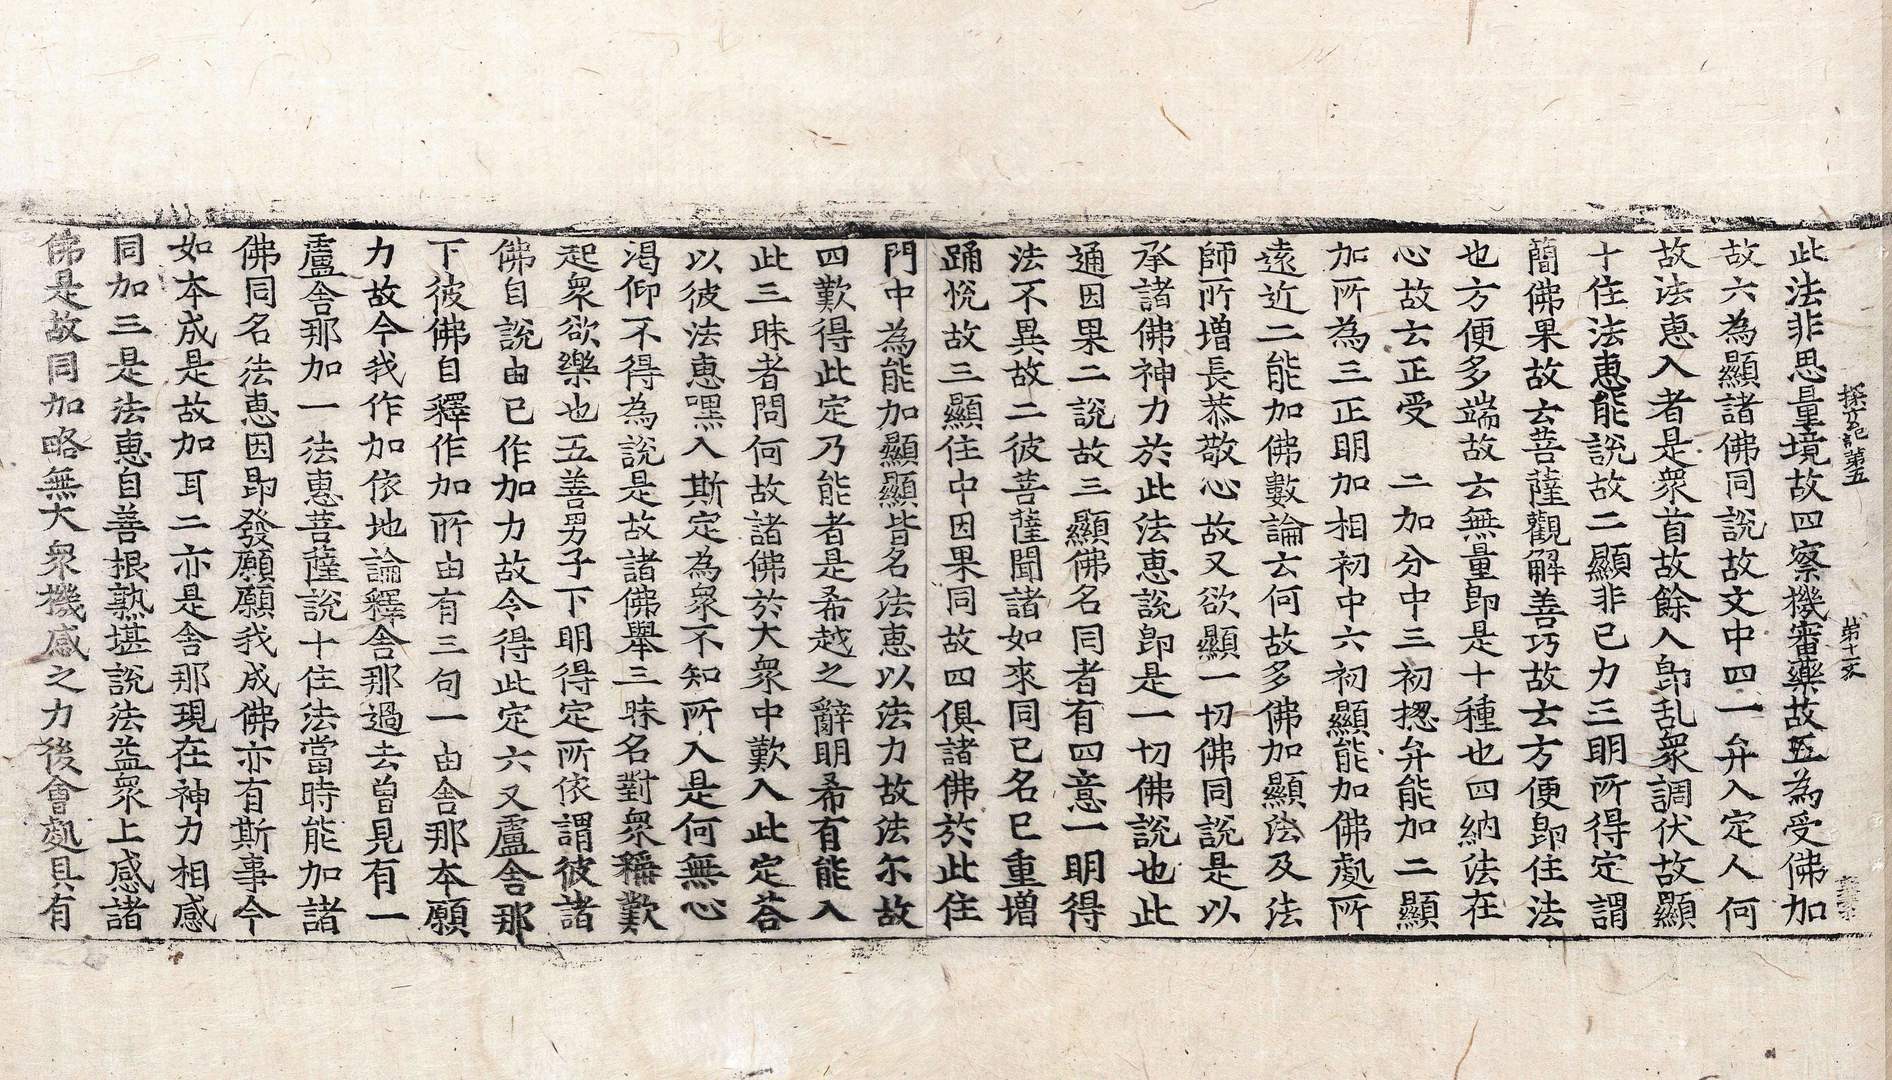 探玄記第五 第十一丈
此法非思量境故四察機審藥故五為受佛加
故六為顯諸佛同說故文中四一弁入定人何
故法惠入者是衆首故餘入即乱衆調伏故顯
十住法惠能說故二顯非已力三明所得定謂
簡佛果故云菩薩觀解善巧故云方便即住法
也方便多端故云無量即是十種也四納法在
心故云正受 二加分中三初揔弁能加二顯
加所為三正明加相初中六初顯能加佛處所
遠近二能加佛數論云何故多佛加顯法及法
師所增長恭敬心故又欲顯一切佛同說是以
承諸佛神力於此法惠說即是一切佛說也此
通因果二說故三顯佛名同者有四意一明得
法不異故二彼菩薩聞諸如來同已名已重增
踊悅故三顯住中因果同故四俱諸佛於此住
門中為能加顯顯皆名法惠以法力故法尓故
四歎得此定乃能者是希越之辭明希有能入
此三昧者問何故諸佛於大衆中歎入此定荅
以彼法惠嘿入斯定為衆不知所入是何無心
渴仰不得為說是故諸佛舉三昧名對衆稱歎
起衆欲樂也五善男子下明得定所依謂彼諸
佛自說由已作加力故令得此定六又盧舍那
下彼佛自釋作加所由有三句一由舍那本願
力故今我作加依地論釋舍那過去曾見有一
盧舍那加一法惠菩薩說十住法當時能加諸
佛同名法惠因即發願願我成佛亦有斯事今
如本成是故加耳二亦是舍那現在神力相感
同加三是法惠自善根熟堪說法益衆上感諸
佛是故同加略無大衆機感之力後會處具有